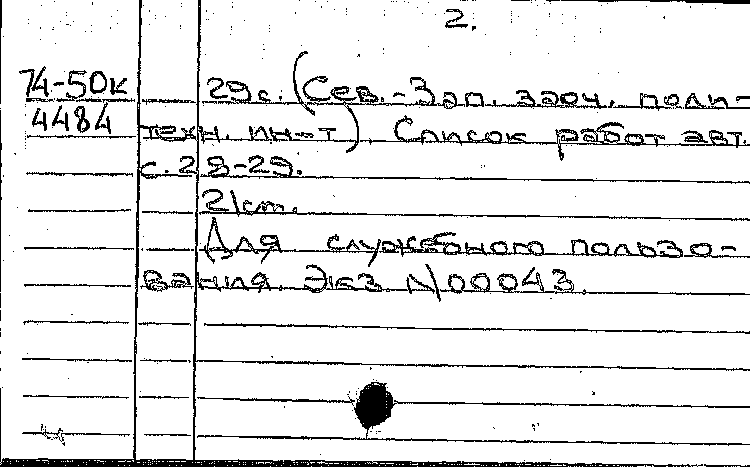 2.
74-50к 29с. (Сев.-Зап. заоч. поли-
4484 техн. ин-т). Список работ авт.
с. 28-29.
21см.
Для служебного пользо-
вания. Экз N00043.